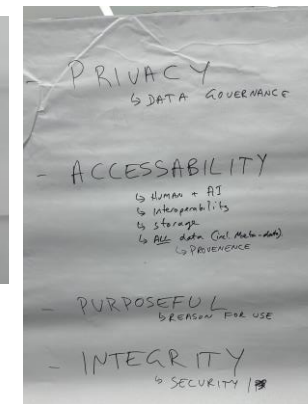 - PRIVACY
↳ DATA GOVERNANCE
- ACCESSABILITY
↳ HUMAN + AI
↳ interoperability
↳ storage
↳ ALL data (incl. Meta-data)
↳ PROVENENCE
- PURPOSEFUL
↳ REASON FOR USE
- INTEGRITY
↳ SECURITY /